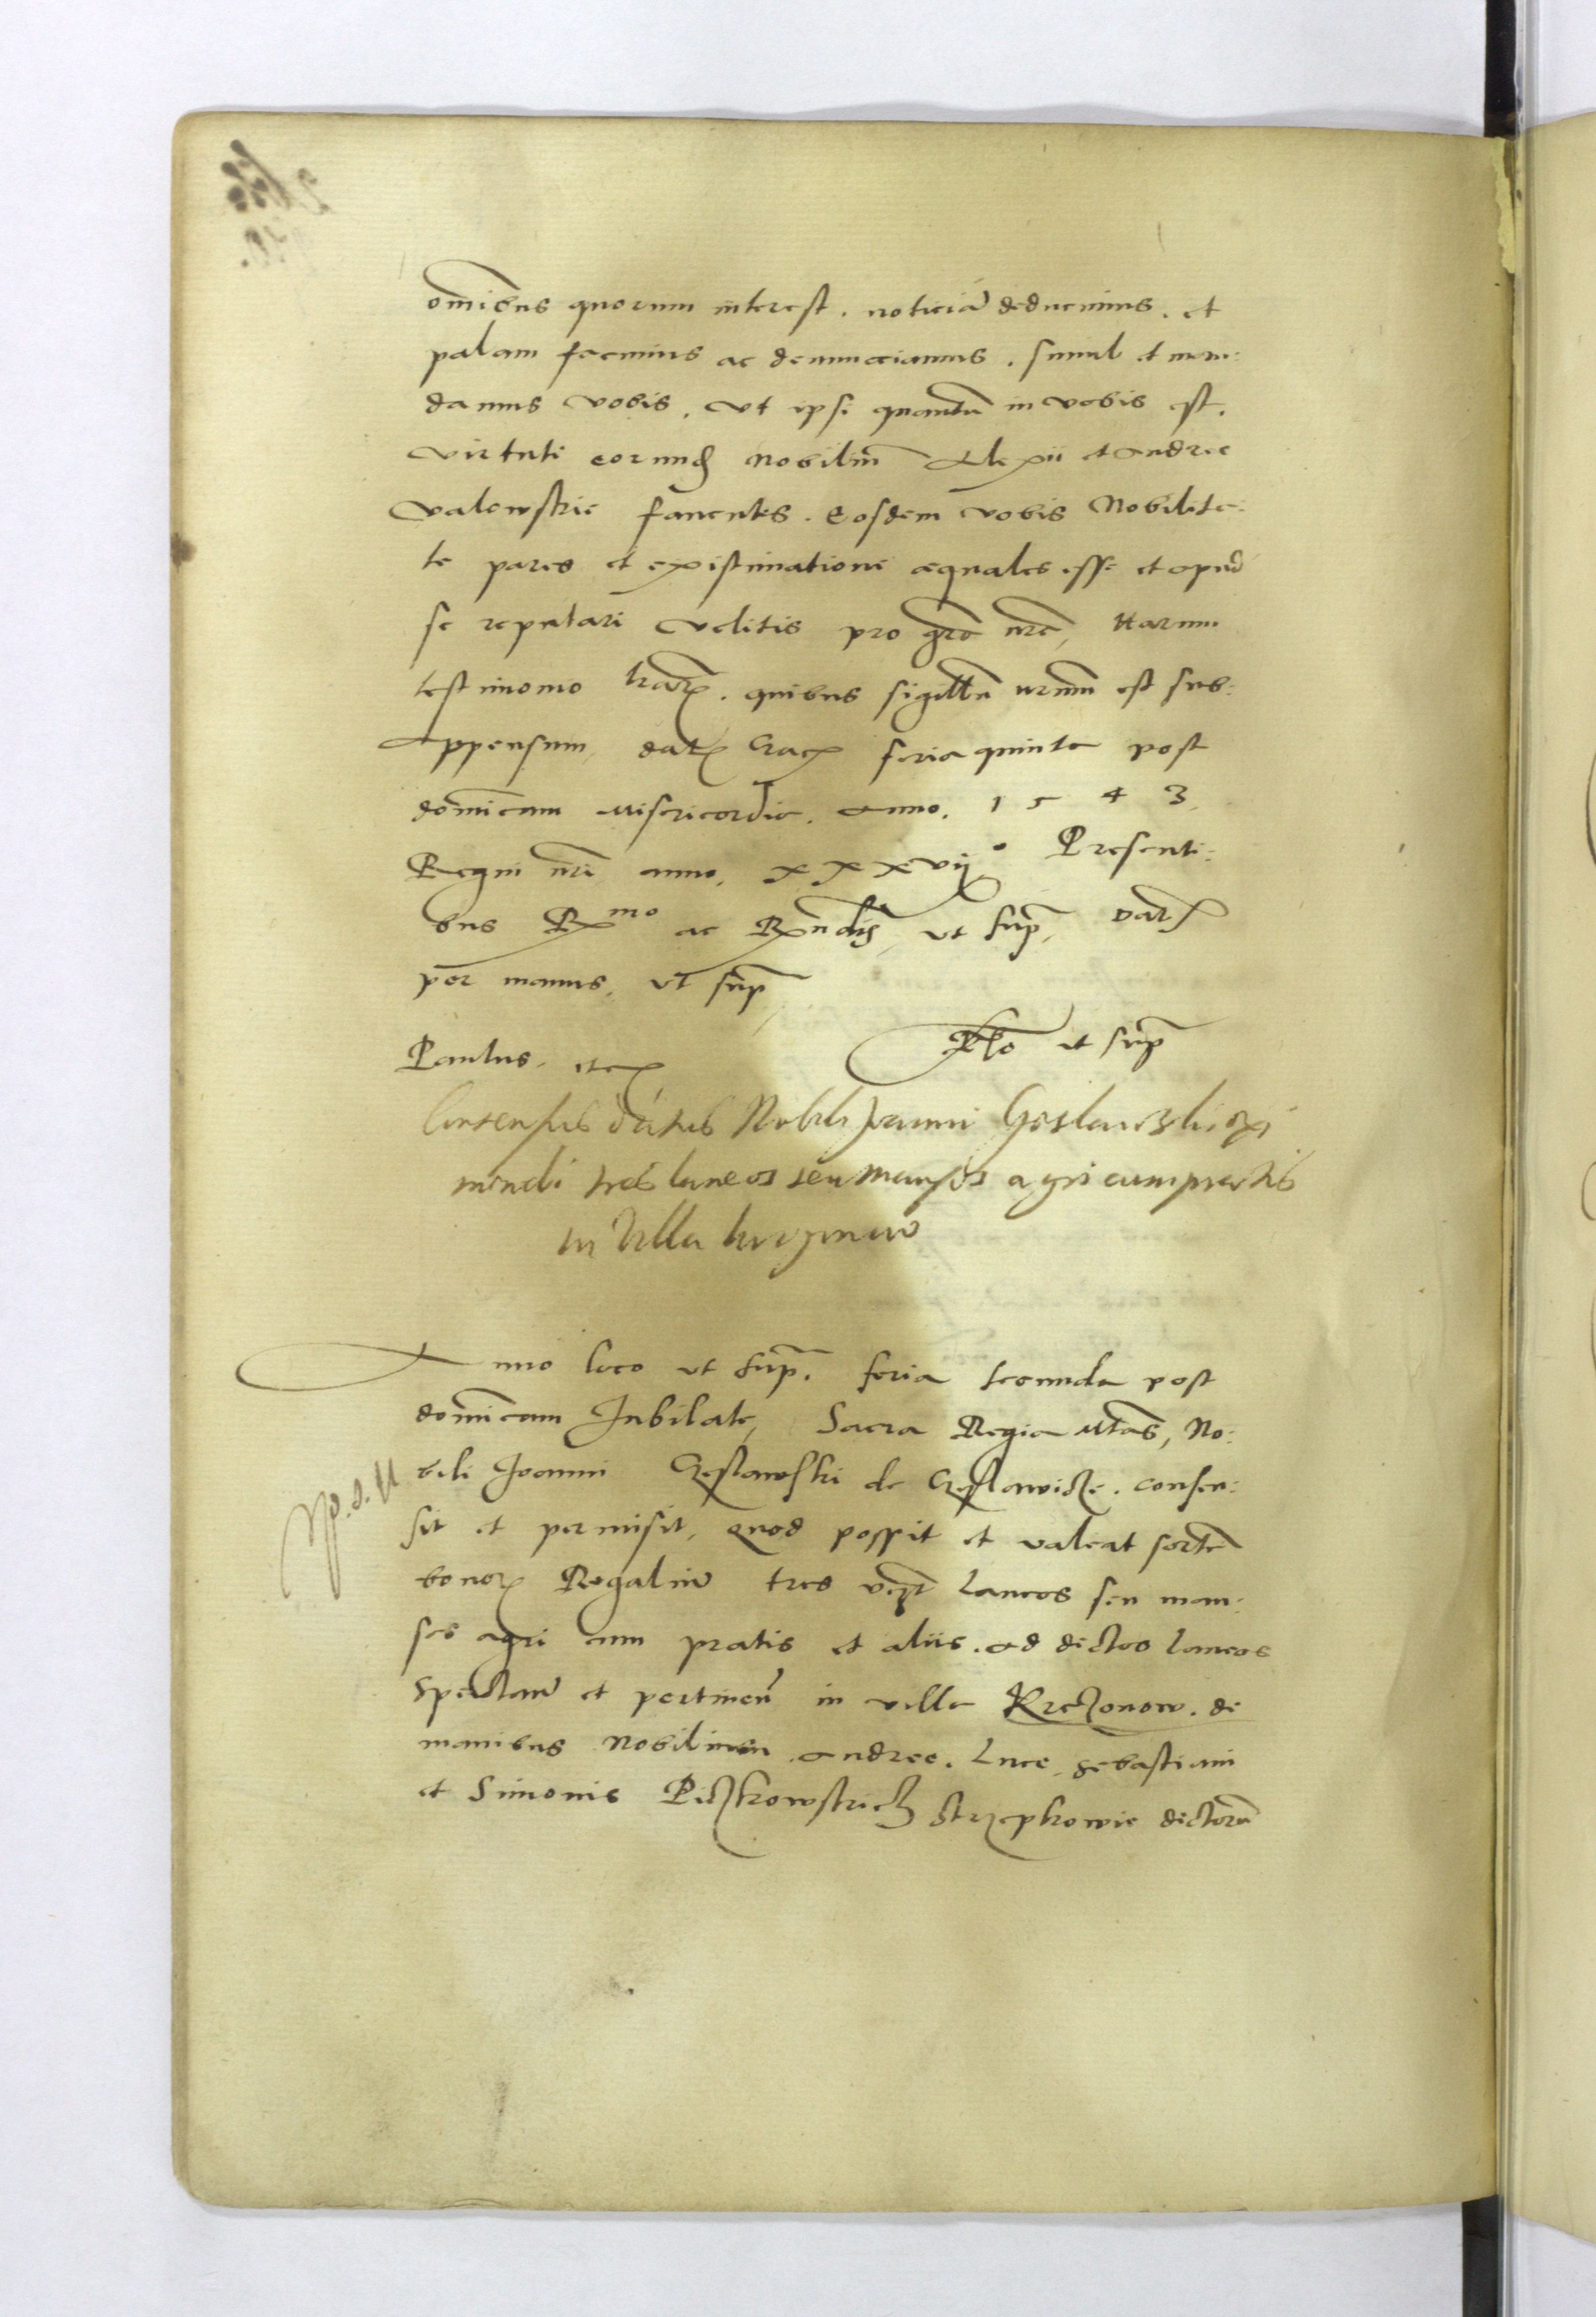 om̅ibus quorum interest. noticiã deducimus. et
palam facimus ac denunctiamus. simul et man:
damus vobis, vt ipsi quantũ in vobis est,
virtuti eorundẽ Nobiliũ Alexii et Andree
Valowskie fauentes. eosdem vobis Nobilita:
te pares et existimatione æquales esse et apud
se reputari velitis pro gra nra, Harum
testimonio lrarũ. quibus sigillũ nrum est sub:
Appensum, dat Crac feria quinta post
dominicam Misericordie. Anno. 1543.
Regni nri anno. xxxvii° Presenti:
bus Rmo ac Rndis, vt supra, Dat
per manus, vt supra
Paulus. etc
Rlo vt supra
Consensus datus Nobili Joanni Goslawski exi
mendi tres laneos seu mansos agri cum pratis
in Villa
Anno loco vt supra. feria secunda post
dominicam Jubilate, Sacra Regia Mtas, No:
bili Joanni Czeslawski de Czeslawicze. consen:
sit et permisit, quod possit et valeat sortẽ
bonorũ Regaliũ tres vcʒt laneos seu man:
sos agri cum pratis et aliis. ad dictos laneos
spectan̅ et pertinen̅ in villa Krczonow. de
manibus Nobilium Andree. Luce, Sebastiani
et Simonis Piczkowskich Strzepkowie dictorũ